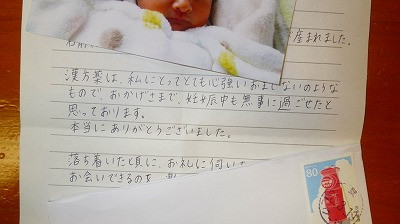 産まれました。
漢方薬は、私にとってとても心強いおまじないのような
もので、おかげさまで、妊娠中も無事に過ごせたと
思っております。
本当にありがとうございました。
落ち着いた頃に、お礼に伺い
お会いできるのを
80